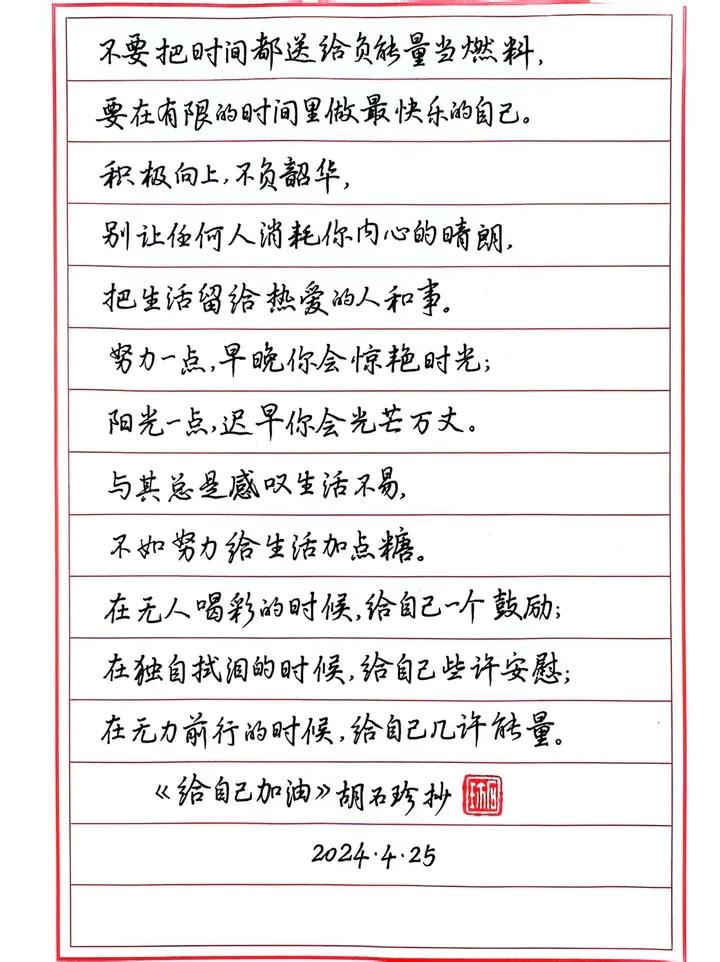 不要把时间都送给负能量当燃料,
要在有限的时间里做最快乐的自己。
积极向上,不负韶华,
别让任何人消耗你内心的晴朗,
把生活留给热爱的人和事。
努力一点,早晚你会惊艳时光;
阳光一点,迟早你会光芒万丈。
与其总是感叹生活不易,
不如努力给生活加点糖。
在无人喝彩的时候,给自己一个鼓励;
在独自拭泪的时候,给自己些许安慰;
在无力前行的时候,给自己几许能量。
《给自己加油》胡石珍抄
2024·4·25